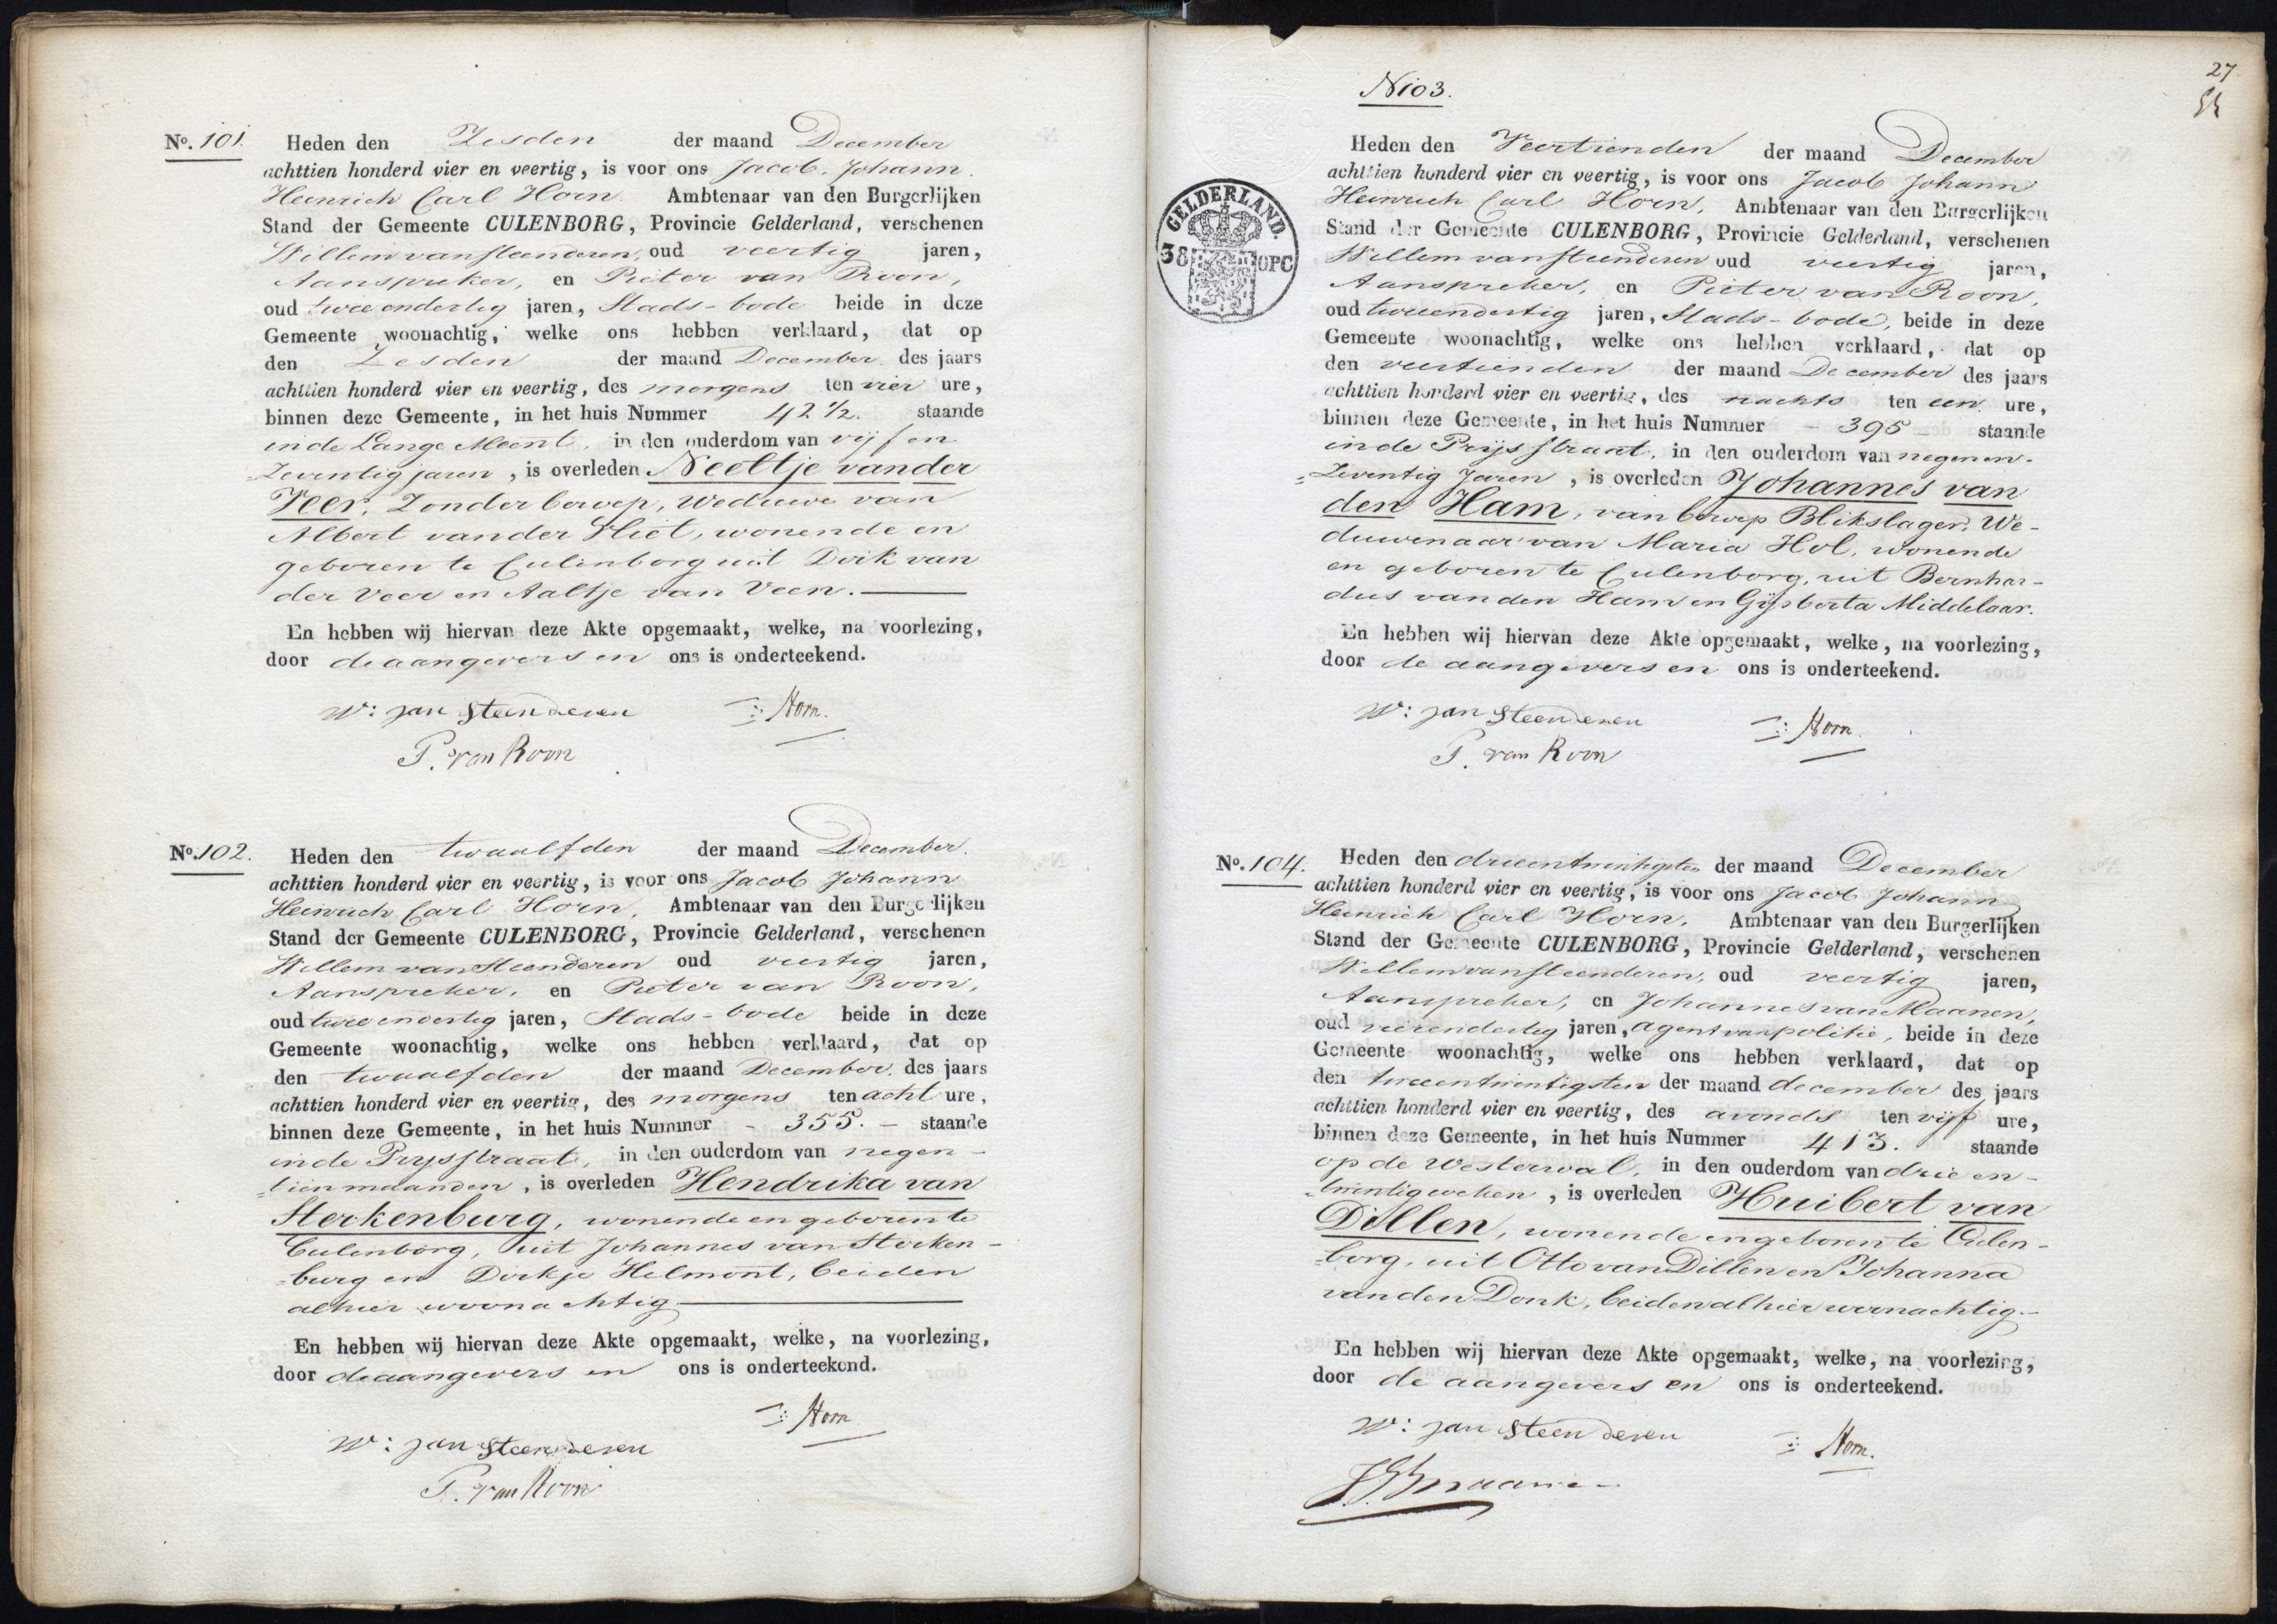 No. 101. Heden den Zesden der maand December
achttien honderd vier en veertig, is voor ons Jacob Johann
Heinrich Carl Horn Ambtenaar van den Burgerlijken
Stand der Gemeente CULENBORG, Provincie Gelderland, verschenen
Willem van Steenderen, oud veertig jaren,
Aanspreker, en Pieter van Roon,
oud twee en dertig jaren, Stads-bode beide in deze
Gemeente woonachtig, welke ons hebben verklaard, dat op
den Zesden der maand December des jaars
achttien honderd vier en veertig, des morgens ten vier ure,
binnen deze Gemeente, in het huis Nummer 42 1/2. staande
in de Lange Meent, in den ouderdom van vijf en
Zeventig jaren, is overleden Neeltje van der
Veer, Zonder beroep, Weduwe van
Albert van der Vliet, wonende en
geboren te Culenborg uit Dirk van
der Veer en Aaltje van Veen.
En hebben wij hiervan deze Akte opgemaakt, welke, na voorlezing,
door de aangevers en ons is onderteekend.
W: van Steenderen Horn.
P. van Roon
No. 102. Heden den twaalfden der maand December.
achttien honderd vier en veertig, is voor ons Jacob Johann
Heinrich Carl Horn, Ambtenaar van den Burgerlijken
Stand der Gemeente CULENBORG, Provincie Gelderland, verschenen
Willem van Steenderen oud veertig jaren,
Aanspreker, en Pieter van Roon,
oud twee en dertig jaren, Stads-bode beide in deze
Gemeente woonachtig, welke ons hebben verklaard, dat op
den twaalfden der maand December. des jaars
achttien honderd vier en veertig, des morgens ten acht ure,
binnen deze Gemeente, in het huis Nummer - 355. - staande
in de Prijsstraat, in den ouderdom van negen-
=tien maanden, is overleden Hendrika van
Sterkenburg, wonende en geboren te
Culenborg, uit Johannes van Sterken-
=burg en Dirkje Helmont, beiden
alhier woonachtig
En hebben wij hiervan deze Akte opgemaakt, welke, na voorlezing,
door de aangevers en ons is onderteekend.
Horn
W: van Steenderen
P. van Roon
27
N103.
GELDERLAND.
38 OPC
Heden den Veertienden der maand December
achttien honderd vier en veertig, is voor ons Jacob Johann
Heinrich Carl Horn, Ambtenaar van den Burgerlijken
Stand der Gemeente CULENBORG, Provincie Gelderland, verschenen
Willem van Steenderen oud veertig jaren,
Aanspreker, en Pieter van Roon,
oud twee en dertig jaren, Stads-bode, beide in deze
Gemeente woonachtig, welke ons hebben verklaard, dat op
den veertienden der maand December des jaars
achttien honderd vier en veertig, des nachts ten een ure,
binnen deze Gemeente, in het huis Nummer - 395 - staande
in de Prijsstraat, in den ouderdom van negen en-
=Zeventig Jaren, is overleden Johannes van
den Ham, van beroep Blikslager, We-
duwenaar van Maria Hol, wonende
en geboren te Culenborg, uit Bernhar-
dus van den Ham en Gijsberta Middelaar.
En hebben wij hiervan deze Akte opgemaakt, welke, na voorlezing,
door de aangevers en ons is onderteekend.
W: van Steenderen Horn.
P. van Roon
No. 104. Heden den drieentwintigsten der maand December
achttien honderd vier en veertig, is voor ons Jacob Johann
Heinrich Carl Horn, Ambtenaar van den Burgerlijken
Stand der Gemeente CULENBORG, Provincie Gelderland, verschenen
Willem van Steenderen, oud veertig jaren,
Aanspreker, en Johannes van Maanen,
oud vierendertig jaren, agent van politie, beide in deze
Gemeente woonachtig, welke ons hebben verklaard, dat op
den tweeentwintigsten der maand december des jaars
achttien honderd vier en veertig, des avonds ten vijf ure,
binnen deze Gemeente, in het huis Nummer 413. staande
op de Westerwal, in den ouderdom van drie en-
=twintig weken, is overleden Huibert van
Dillen, wonende en geboren te Culen-
=borg, uit Otto van Dillen en Johanna
van den Donk, beiden alhier woonachtig.-
En hebben wij hiervan deze Akte opgemaakt, welke, na voorlezing,
door de aangevers en ons is onderteekend.
W: van Steenderen Horn.